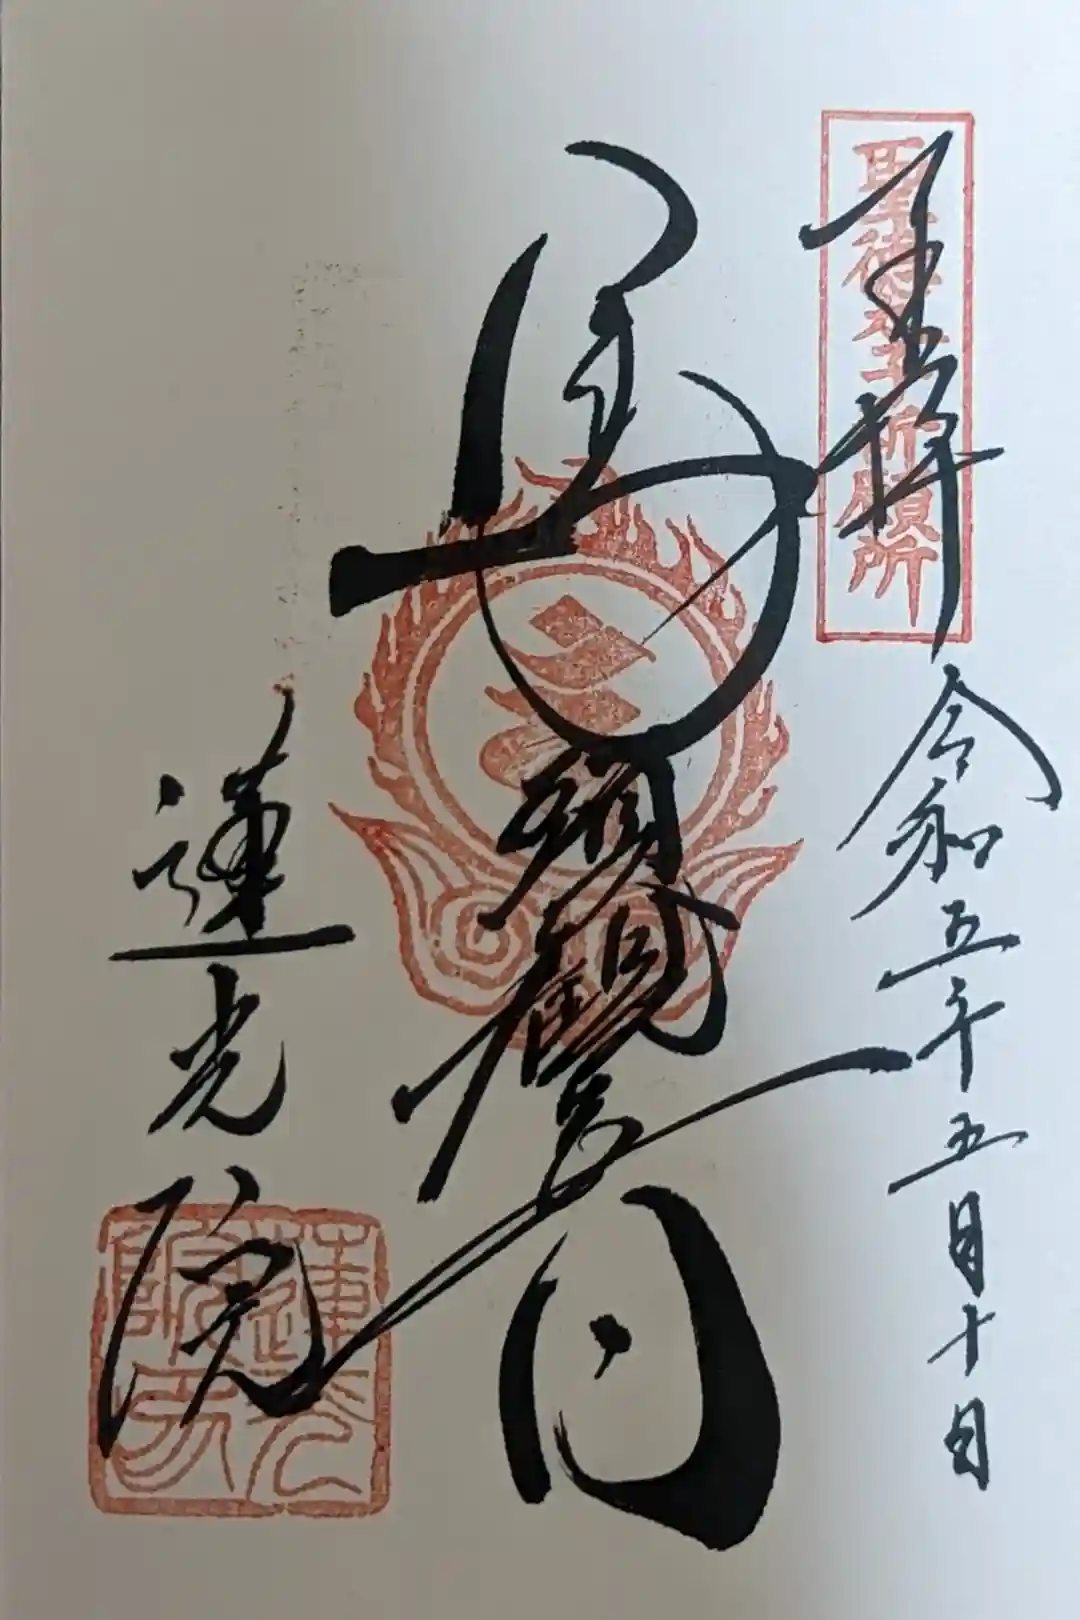 奉拝
聖徳太子祈願所
令和五年五月十日
馬頭観音
蓮光院
蓮光院